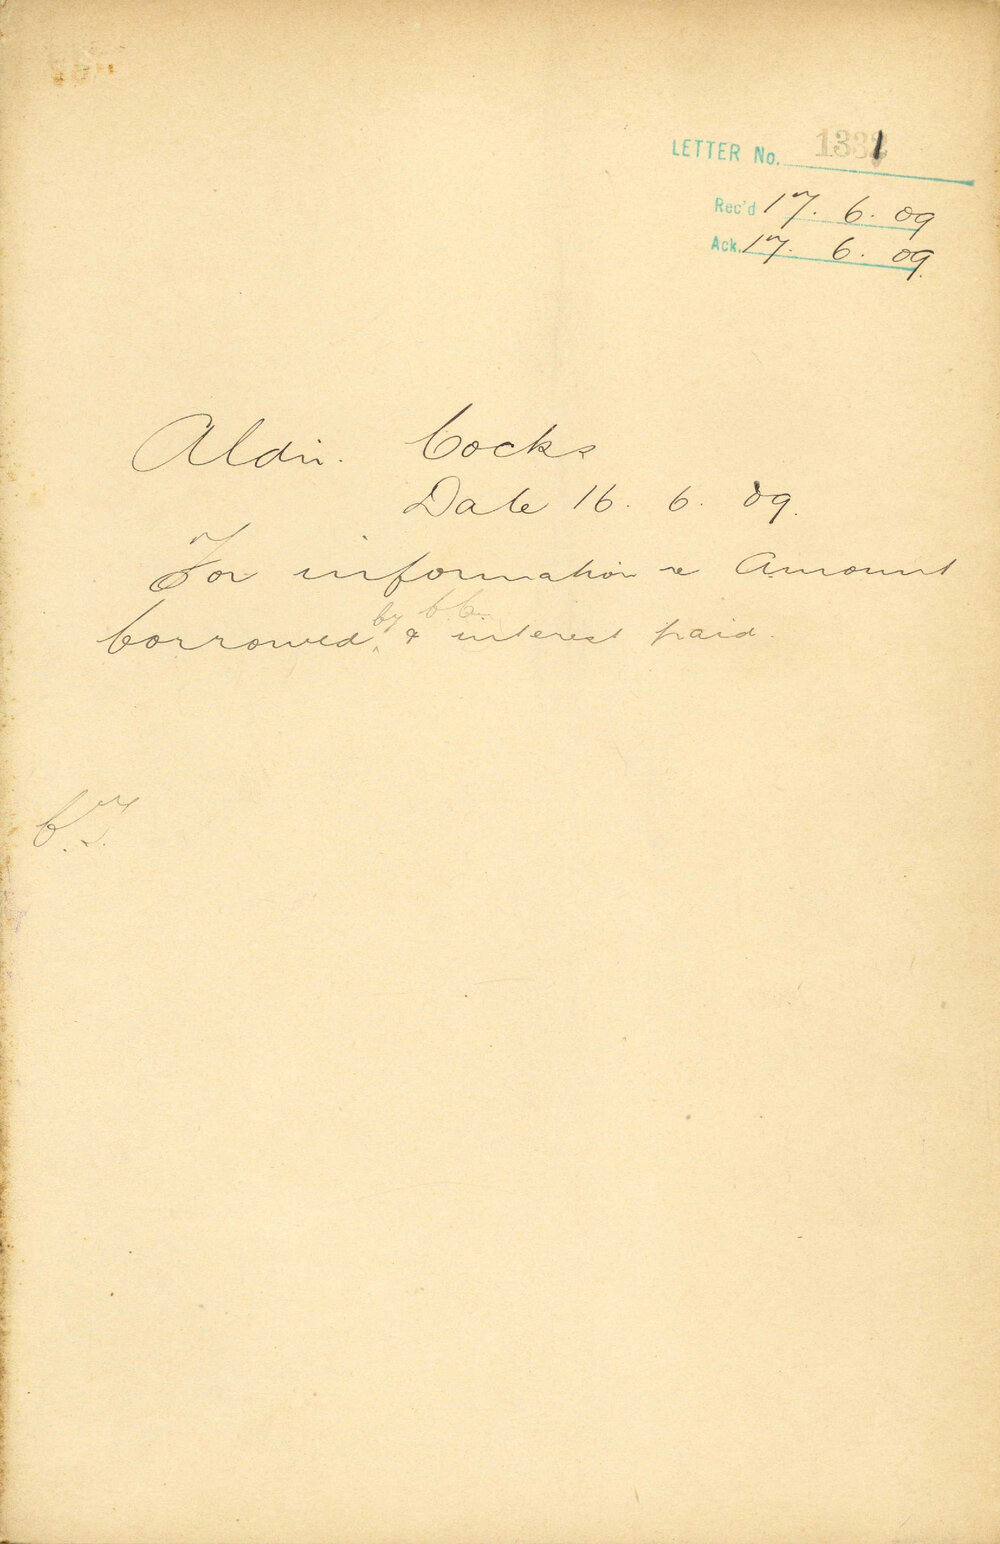 LETTER No. 1331
Rec'd 17. 6. 09
Ack. 17. 6. 09.
Aldn. Cocks
Date 16. 6. 09.
For information re Amount
by C.C.
borrowed & interest paid.
C.T.